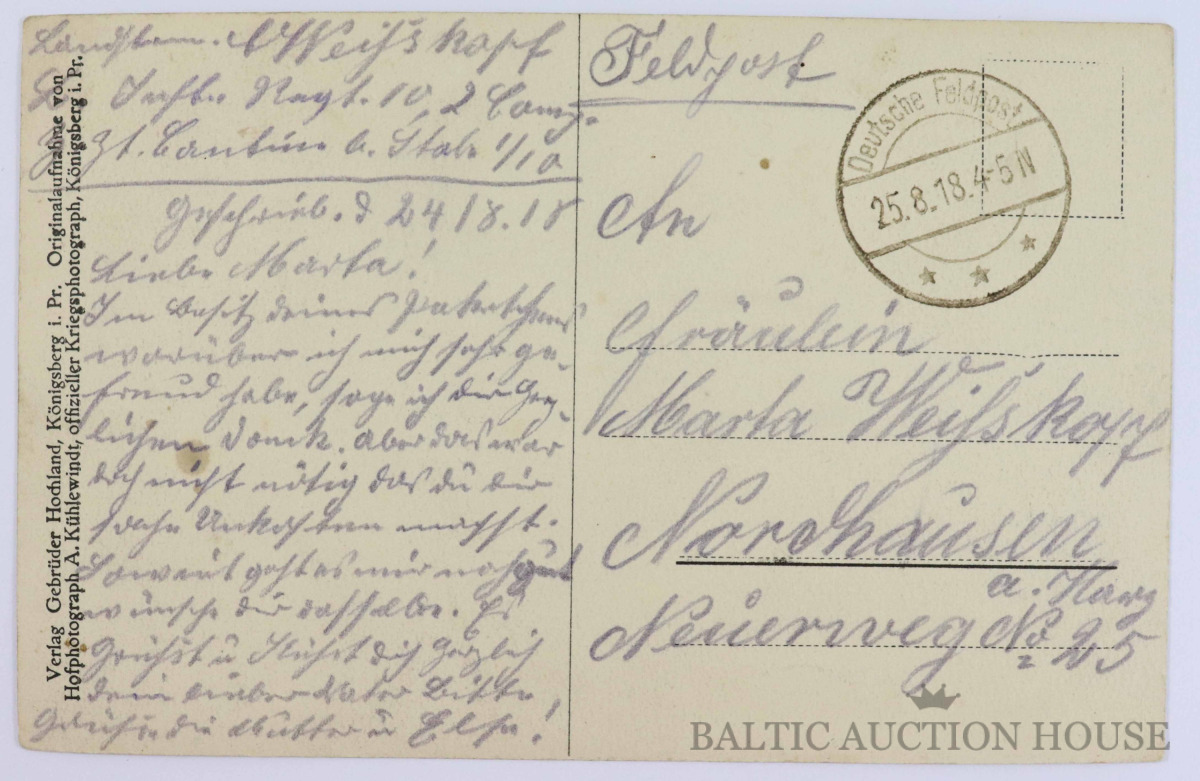 Landstrm. A Weißkopf
Regt. 10, 2 Comp.
Zt. Cantine b. Stabe 1/10
Geschrieb. d 24/8.18
Liebe Marta!
Im Besitz deines Paketchens
worüber ich mich sehr ge-
freud habe, sage ich dir herz-
lichen Danck. Aber das war
doch nicht nötig das du dir
solche Unkosten machst.
Soweit geht es mir noch gut
wünsche dir dasselbe. Es
Grüßt u Küßt dich Herzlich
dein lieber Vater Bitte
Grüße die Mutter u Else!
Verlag Gebrüder Hochland, Königsberg i. Pr. Originalaufnahme von
Hofphotograph A. Kühlewindt, offizieller Kriegsphotograph, Königsberg i. Pr.
Feldpost
Deutsche Feldpost
25.8.18.4-5N
An
Fräulein
Marta Weißkopf
Nordhausen
a. Harz
Neuerweg No 25
BALTIC AUCTION HOUSE